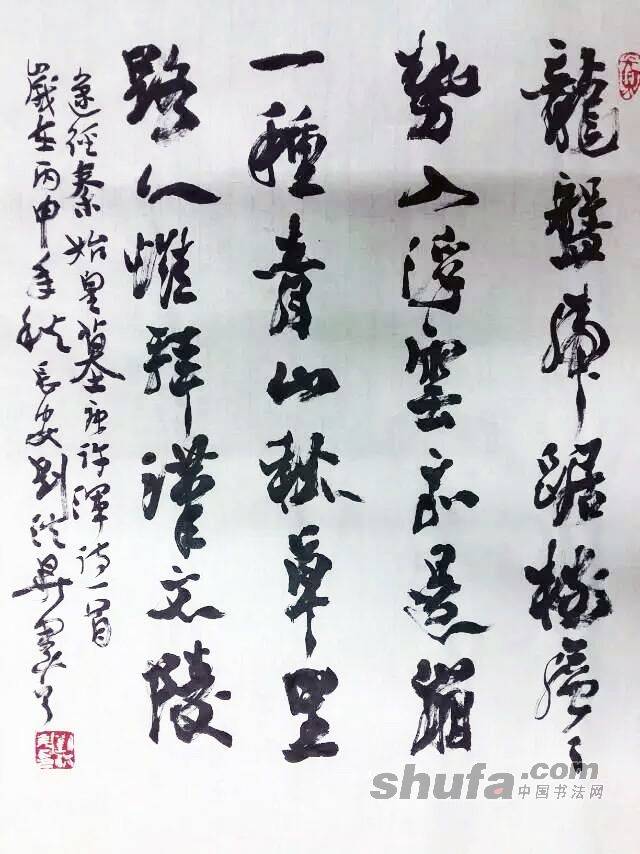 龍盤虎踞樹層々
勢入浮雲亦是崩
一種青山秋草里
路人惟拜漢文陵
途經秦始皇墓唐許渾詩一首
歲在丙申年秋長安劉書
shufa.com
中国书法网